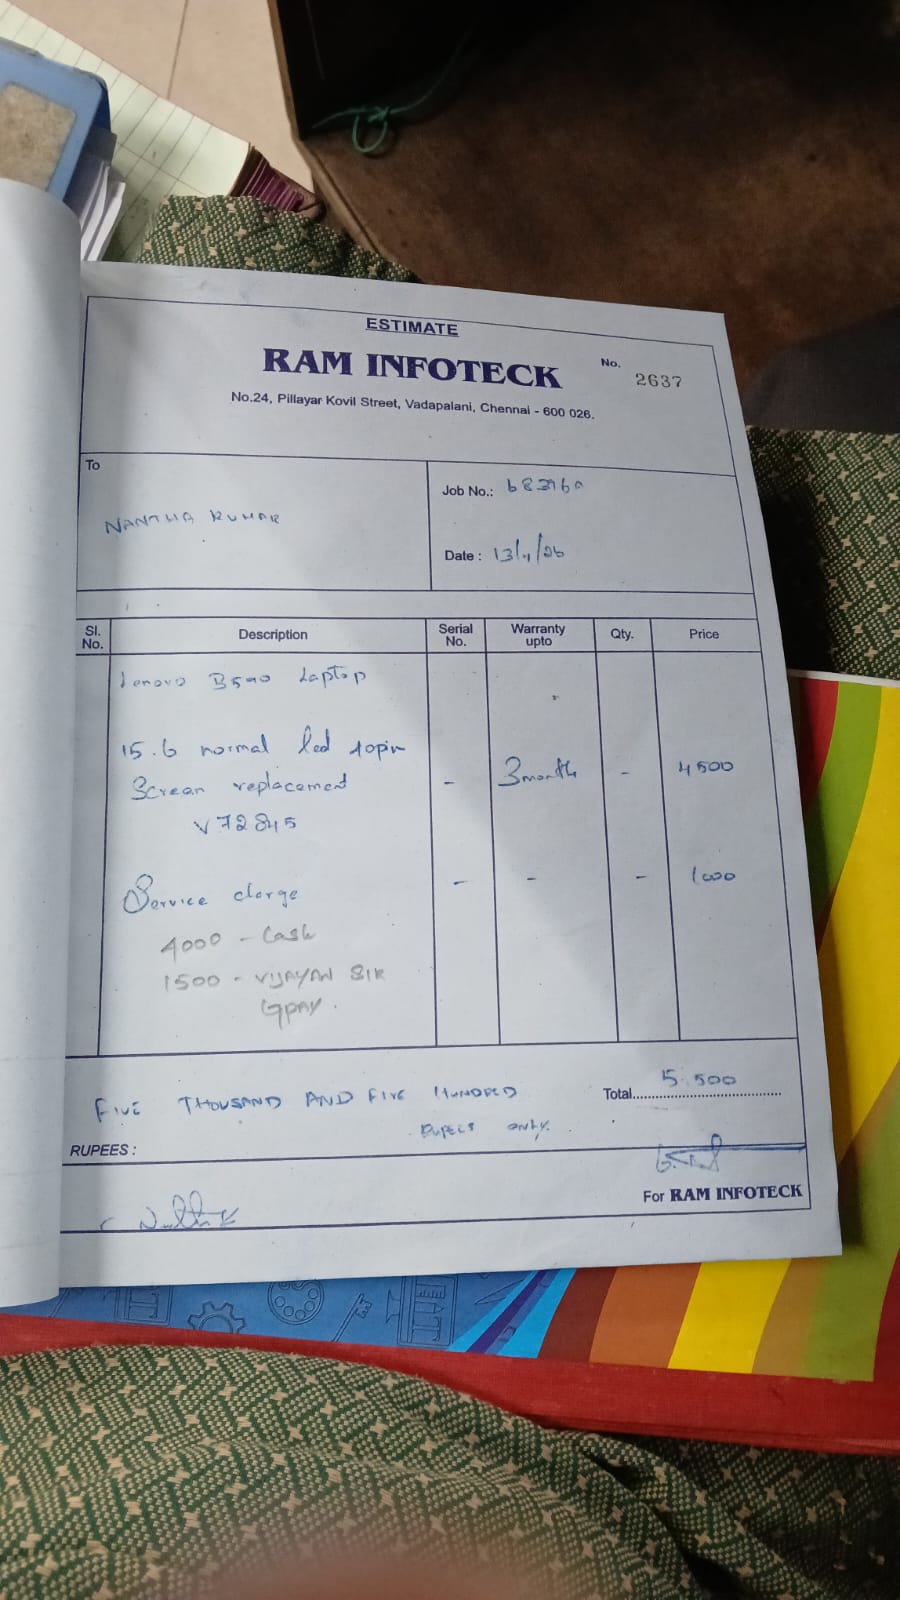 ESTIMATE
RAM INFOTECK
No. 2637
No.24, Pillayar Kovil Street, Vadapalani, Chennai - 600 026.
To
NANTHA KUMAR
Job No.:
Date : 13/4/26
Sl. No. Description Serial No. Warranty upto Qty. Price
Lenovo B590 Laptop
15.6 normal led 40pin
Screan replacement - 3month - 4500
V72845
Service charge - - - 1000
4000 - Cash
1500 - VIJAYAN SIR
GPAY.
Total 5.500
FIVE THOUSAND AND FIVE HUNDRED
RUPEES ONLY.
RUPEES :
For RAM INFOTECK